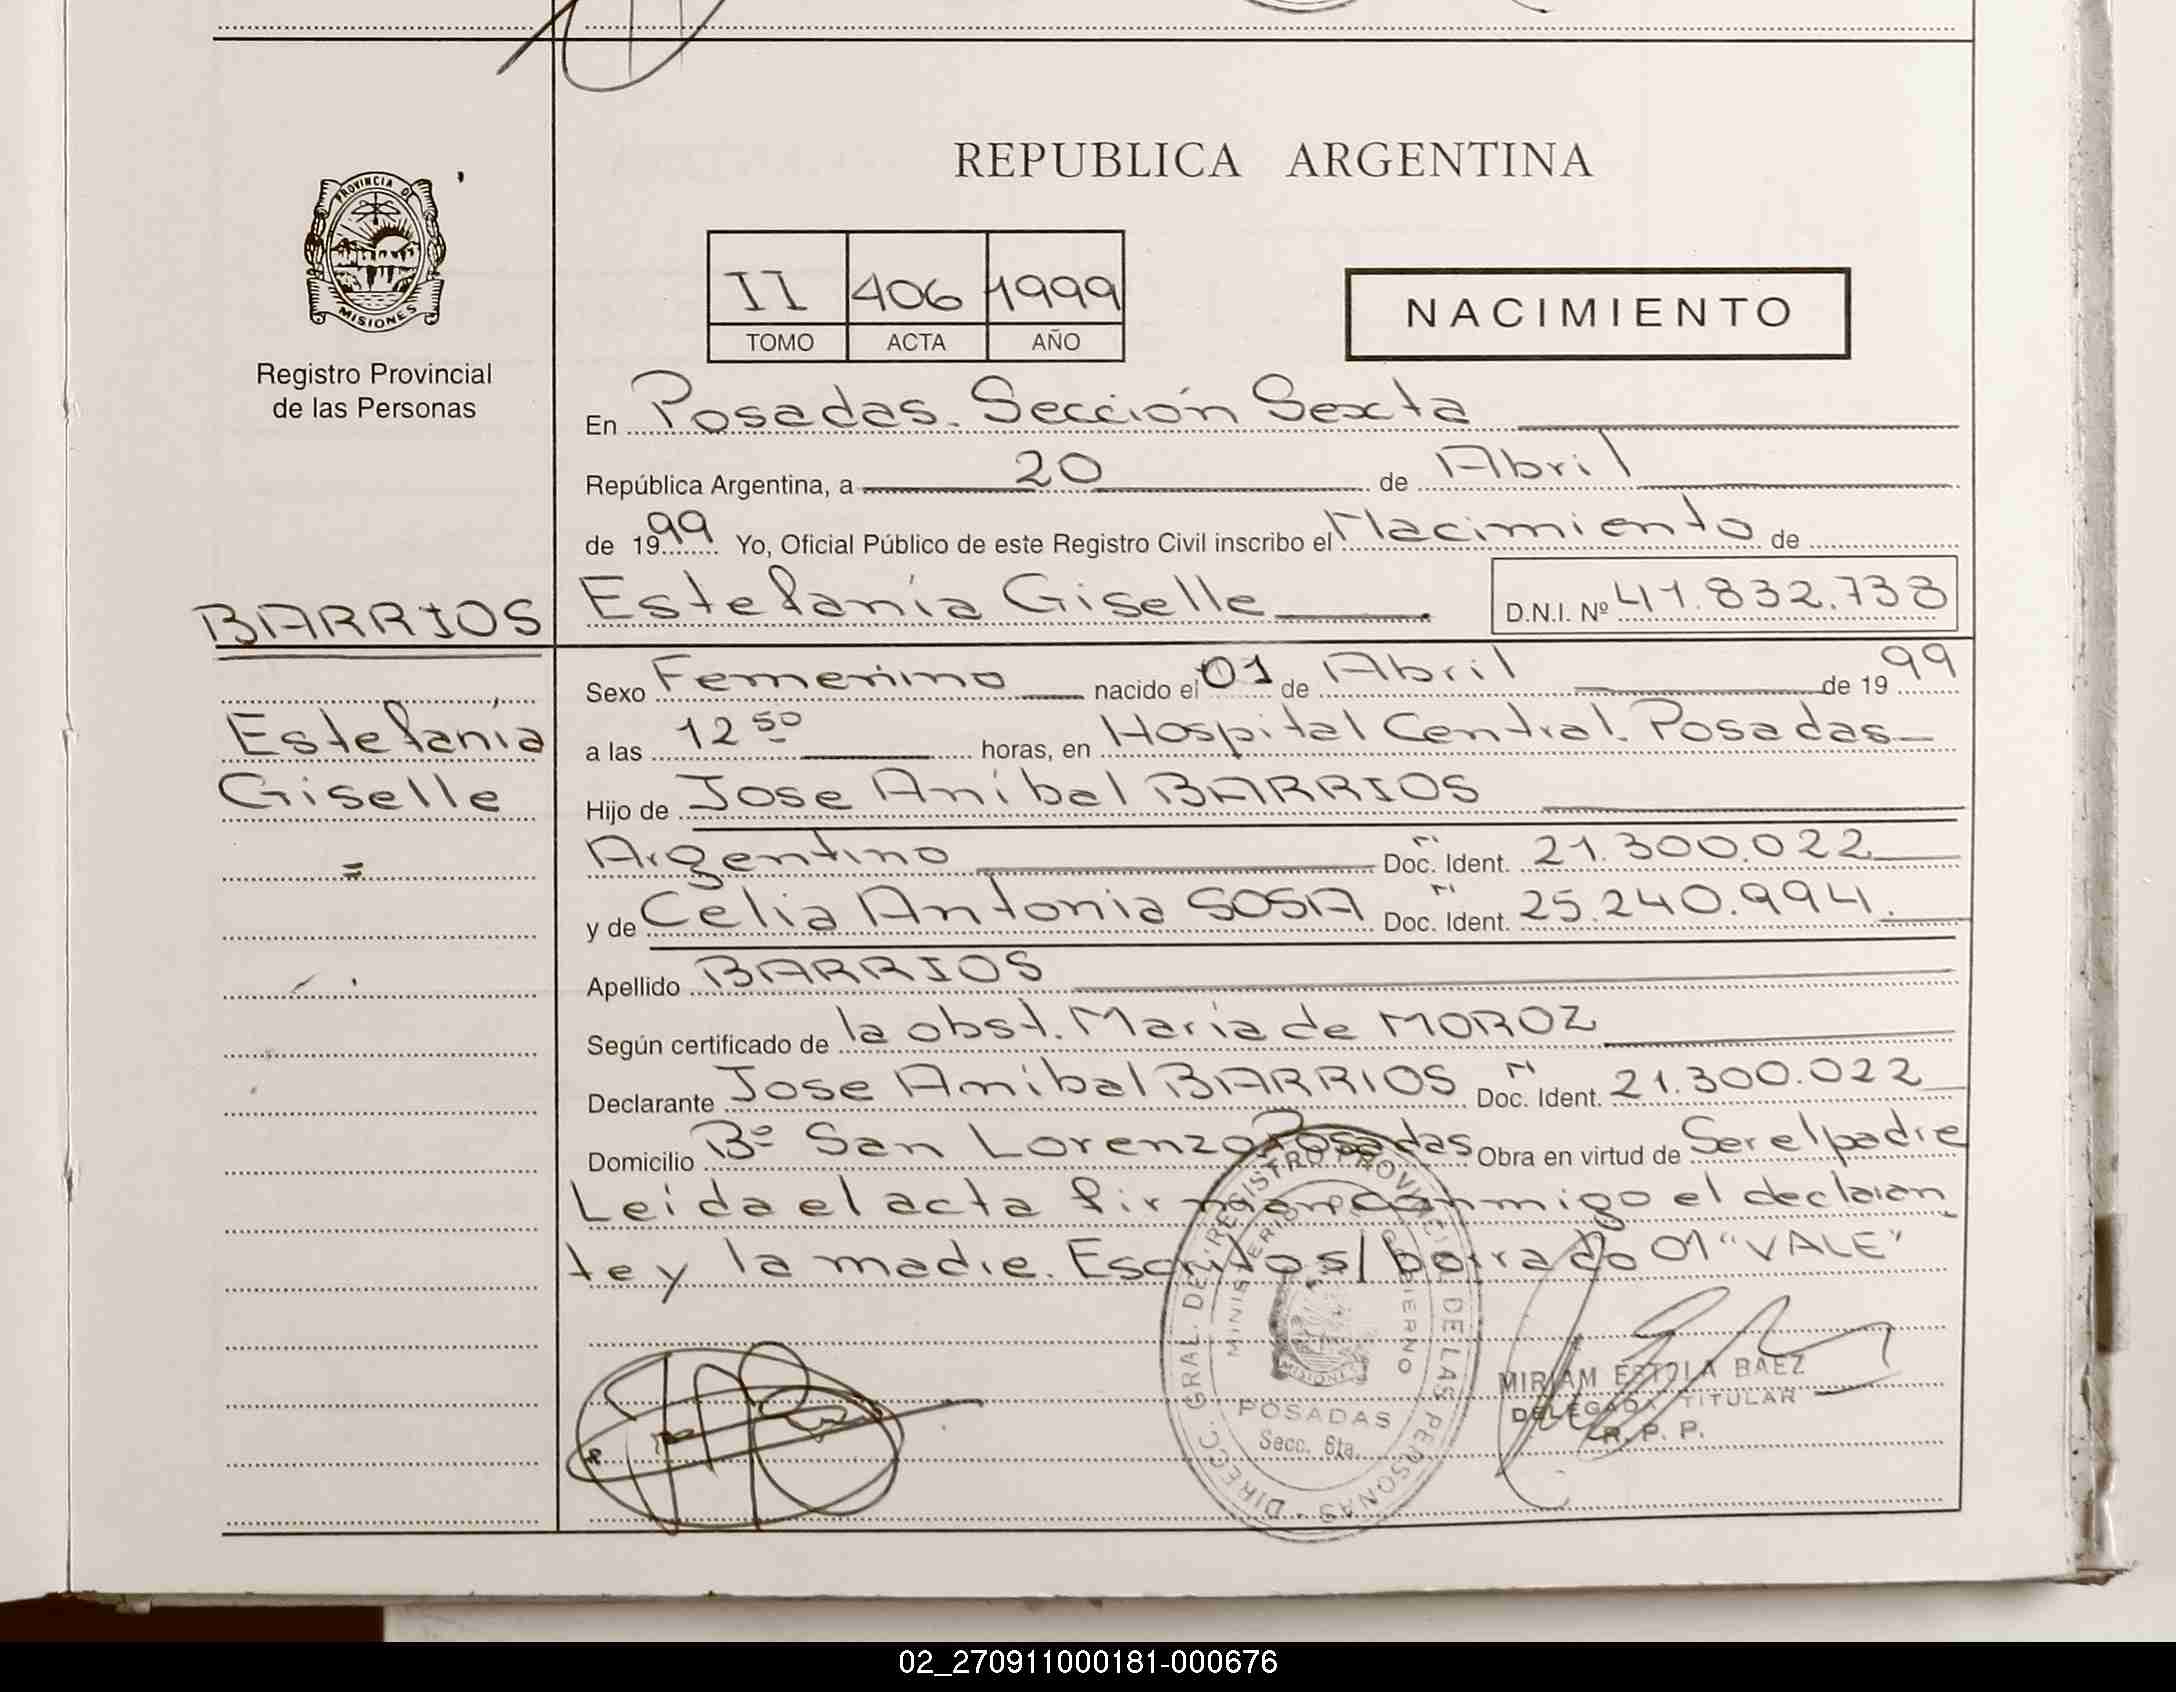 REPUBLICA ARGENTINA
PROVINCIA DE
MISIONES
Registro Provincial
de las Personas
II 406 1999
TOMO ACTA AÑO
NACIMIENTO
En Posadas. Sección Sexta
República Argentina, a 20 de Abril
de 1999 Yo, Oficial Público de este Registro Civil inscribo el Nacimiento de
BARRIOS
Estefanía Giselle D.N.I. Nº 41.832.738
Estefanía
Giselle
=
Sexo Femenino nacido el 01 de Abril de 1999
a las 12 50 horas, en Hospital Central. Posadas
Hijo de Jose Aníbal BARRIOS
Argentino Doc. Ident. 21.300.022
y de Celia Antonia SOSA Doc. Ident. 25.240.994.
Apellido BARRIOS
Según certificado de la obst. María de MOROZ
Declarante Jose Aníbal BARRIOS Doc. Ident. 21.300.022
Domicilio Bº San Lorenzo Posadas Obra en virtud de Ser el padre
Leída el acta firman conmigo el declaran
te y la madre. Escrito s/ borrado 01 "VALE"
DIRECC. GRAL. DEL REGISTRO PROVINCIAL DE LAS PERSONAS
MINISTERIO DE GOBIERNO
MISIONES
POSADAS
Secc. 6ta.
MIRIAM ESTELA BAEZ
DELEGADA TITULAR
R. P. P.
02_270911000181-000676